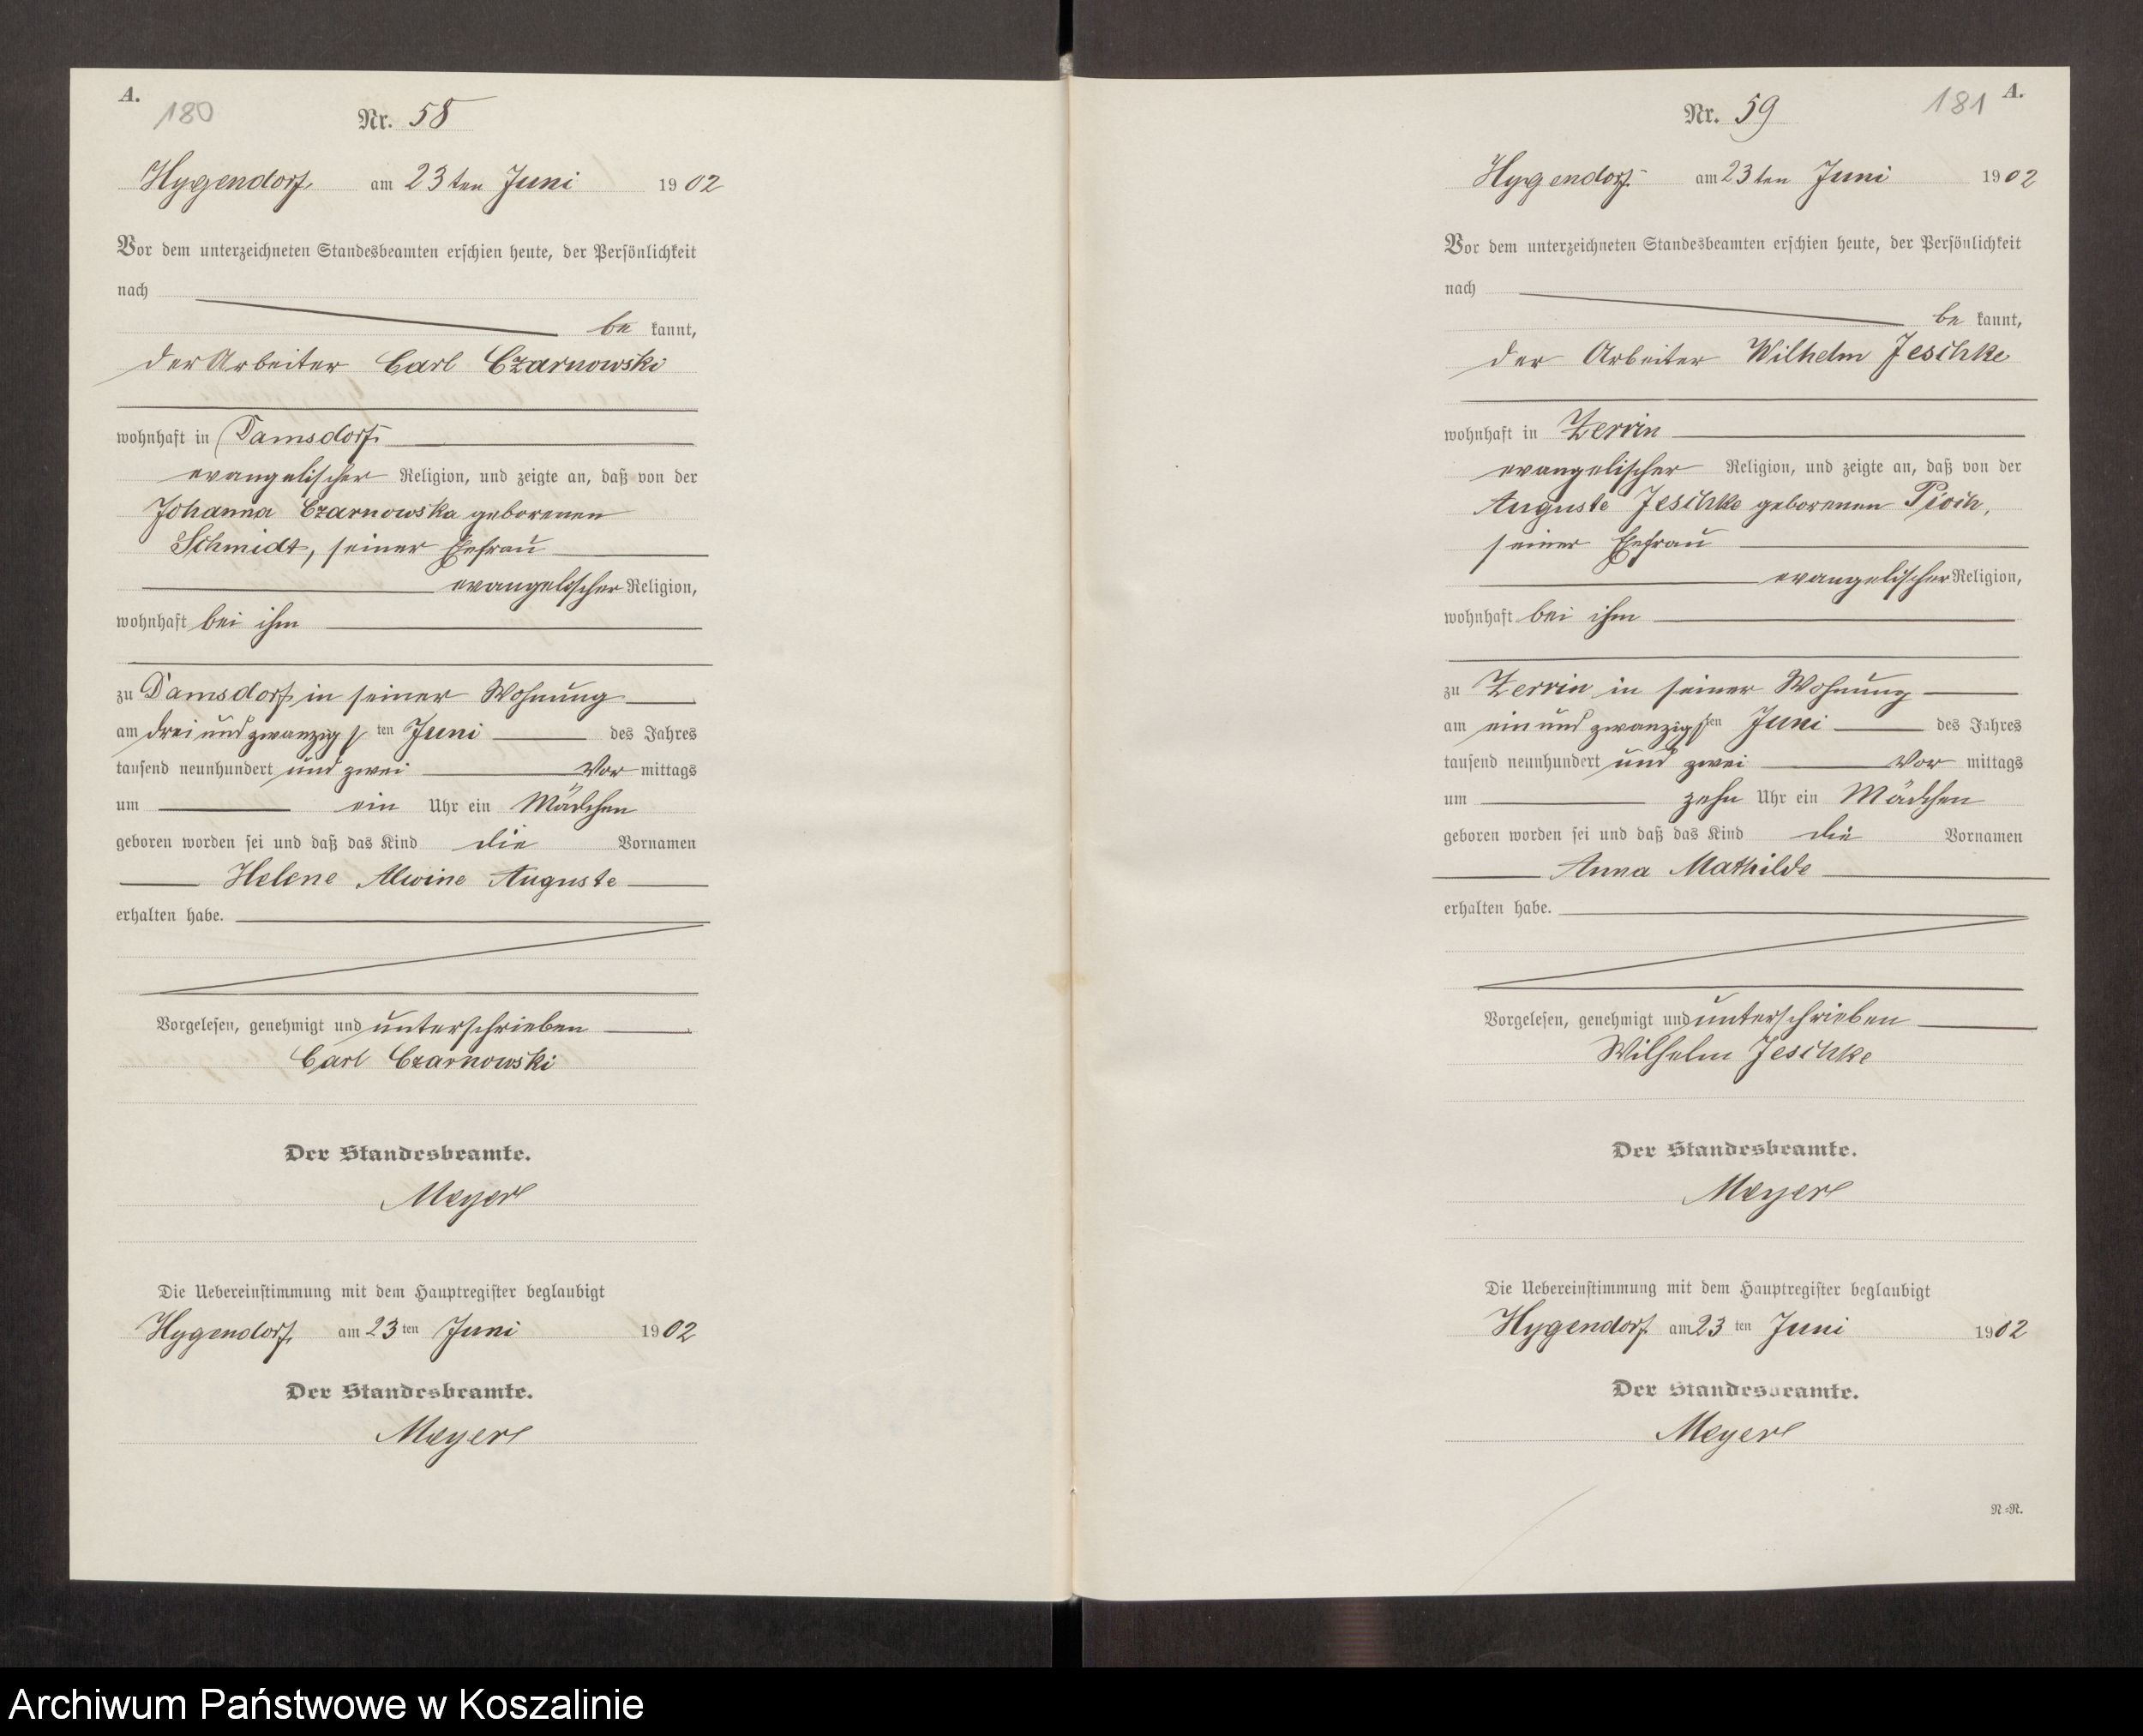 A.
180
Nr. 58
Hygendorf am 23ten Juni 1902
Vor dem unterzeichneten Standesbeamten erschien heute, der Persönlichkeit
nach
be kannt,
der Arbeiter Carl Czarnowski
wohnhaft in Damsdorf
evangelischer Religion, und zeigte an, daß von der
Johanna Czarnowska geborenen
Schmidt, seiner Ehefrau
evangelischer Religion,
wohnhaft bei ihm
zu Damsdorf in seiner Wohnung
am drei und zwanzigsten Juni des Jahres
tausend neunhundert und zwei Vor mittags
um ein Uhr ein Mädchen
geboren worden sei und daß das Kind die Vornamen
Helene Alwine Auguste
erhalten habe.
Vorgelesen, genehmigt und unterschrieben
Carl Czarnowski
Der Standesbeamte.
Meyer
Die Uebereinstimmung mit dem Hauptregister beglaubigt
Hygendorf am 23ten Juni 1902
Der Standesbeamte.
Meyer
181 A.
Nr. 59
Hygendorf am 23ten Juni 1902
Vor dem unterzeichneten Standesbeamten erschien heute, der Persönlichkeit
nach
be kannt,
der Arbeiter Wilhelm Jeschke
wohnhaft in Zerrin
evangelischer Religion, und zeigte an, daß von der
Auguste Jeschke geborenen Pioch,
seiner Ehefrau
evangelischer Religion,
wohnhaft bei ihm
zu Zerrin in seiner Wohnung
am ein und zwanzigsten Juni des Jahres
tausend neunhundert und zwei Vor mittags
um zehn Uhr ein Mädchen
geboren worden sei und daß das Kind die Vornamen
Anna Mathilde
erhalten habe.
Vorgelesen, genehmigt und unterschrieben
Wilhelm Jeschke
Der Standesbeamte.
Meyer
Die Uebereinstimmung mit dem Hauptregister beglaubigt
Hygendorf am 23ten Juni 1902
Der Standesbeamte.
Meyer
N.=N.
Archiwum Państwowe w Koszalinie